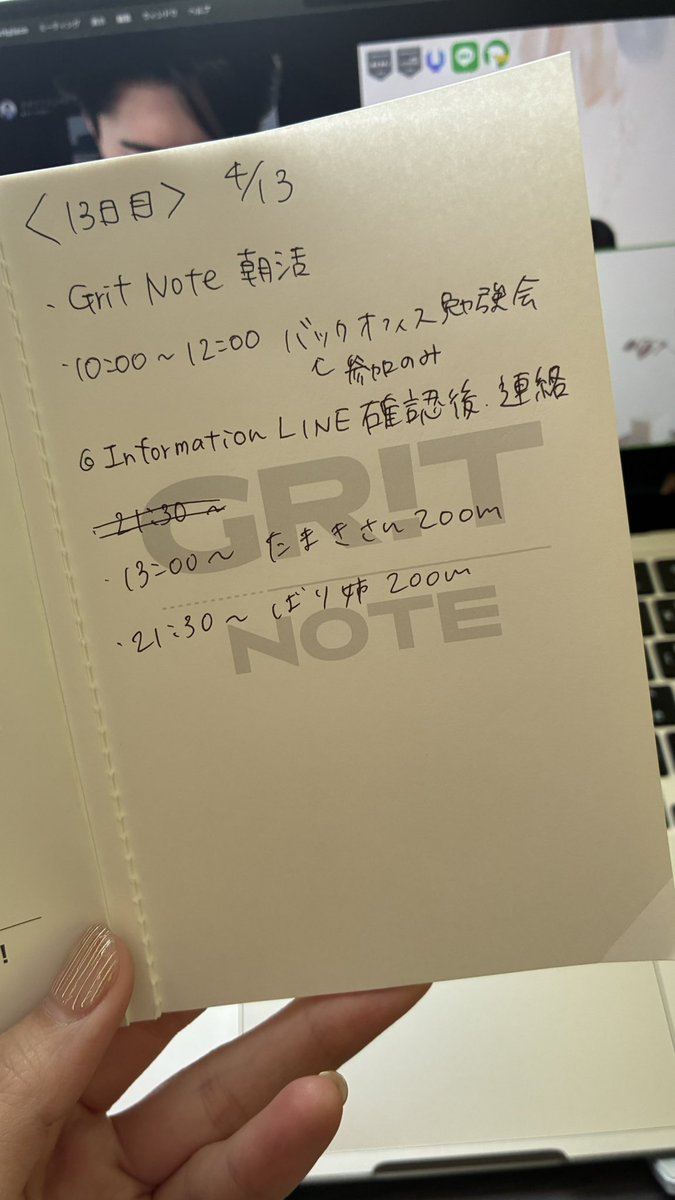 ミーティング 表示 編集 ウィンドウ ヘルプ
<13日目> 4/13
・Grit Note 朝活
・10:00~12:00 バックオフィス勉強会
参加のみ
◎Information LINE 確認後.連絡
・21:30~
・13:00~ たまきさん zoom
・21:30~ ばり姉 zoom
GRIT
NOTE
!